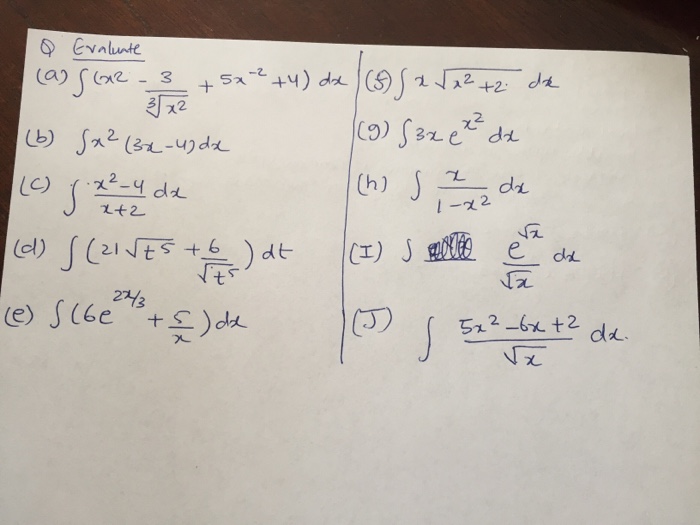 Q Evaluate
(a) ∫(x2 - 3/∛x2 + 5x⁻² + 4) dx
(b) ∫x² (3x-4) dx
(c) ∫ x²-4/x+2 dx
(d) ∫(21√t5 + 6/√t5) dt
(e) ∫(6e^2x/3 + 5/x) dx
(f) ∫ x √x²+2 dx
(g) ∫3x e^x² dx
(h) ∫ x/1-x² dx
(I) ∫ e^√x/√x dx
(J) ∫ 5x²-6x+2/√x dx.